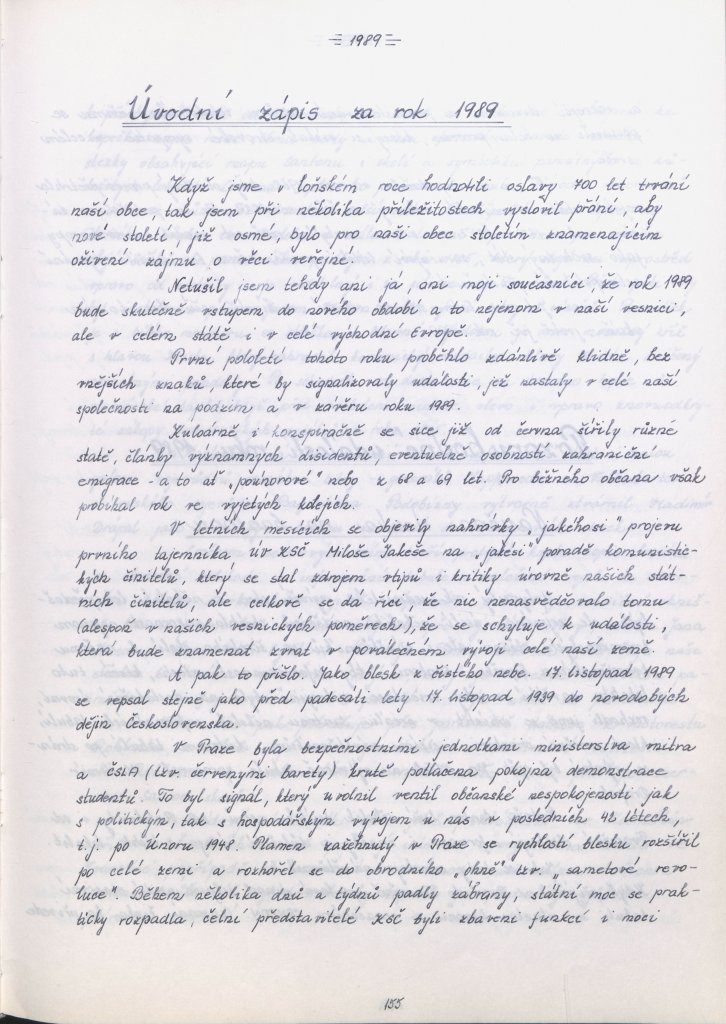 1989
Úvodní zápis za rok 1989
Když jsme v loňském roce hodnotili oslavy 700 let trvání
naší obce, tak jsem při několika příležitostech vyslovil přání, aby
nové století, již osmé, bylo pro naši obec stoletím znamenajícím
oživení zájmu o věci veřejné.
Netušil jsem tehdy ani já, ani moji současníci, že rok 1989
bude skutečně vstupem do nového období a to nejenom v naší vesnici,
ale v celém státě i v celé východní Evropě.
První pololetí tohoto roku proběhlo zdánlivě klidně, bez
vnějších znaků, které by signalizovaly události, jež nastaly v celé naší
společnosti na podzim a v závěru roku 1989.
Kuloárně i konspiračně se sice již od června šířily různé
statě, články významných disidentů, eventuelně osobností zahraniční
emigrace - a to ať „poúnorové" nebo z 68 a 69 let. Pro běžného občana však
probíhal rok ve vyjetých kolejích.
V letních měsících se objevily nahrávky „jakéhosi" projevu
prvního tajemníka ÚV KSČ Miloše Jakeše na „jakési" poradě komunistic-
kých činitelů, který se stal zdrojem vtipů i kritiky úrovně našich stát-
ních činitelů, ale celkově se dá říci, že nic nenasvědčovalo tomu
(alespoň v našich vesnických poměrech), že se schyluje k události,
která bude znamenat zvrat v poválečném vývoji celé naší země.
A pak to přišlo. Jako blesk z čistého nebe. 17. listopad 1989
se vepsal stejně jako před padesáti lety 17. listopad 1939 do novodobých
dějin Československa.
V Praze byla bezpečnostními jednotkami ministerstva vnitra
a ČSLA (tzv. červenými barety) krutě potlačena pokojná demonstrace
studentů. To byl signál, který uvolnil ventil občanské nespokojenosti jak
s politickým, tak s hospodářským vývojem u nás v posledních 42 létech,
t.j. po Únoru 1948. Plamen zažehnutý v Praze se rychlostí blesku rozšířil
po celé zemi a rozhořel se do obrodního „ohně" tzv. „sametové revo-
luce". Během několika dnů a týdnů padly zábrany, státní moc se prak-
ticky rozpadla, čelní představitelé KSČ byli zbaveni funkcí i moci
155